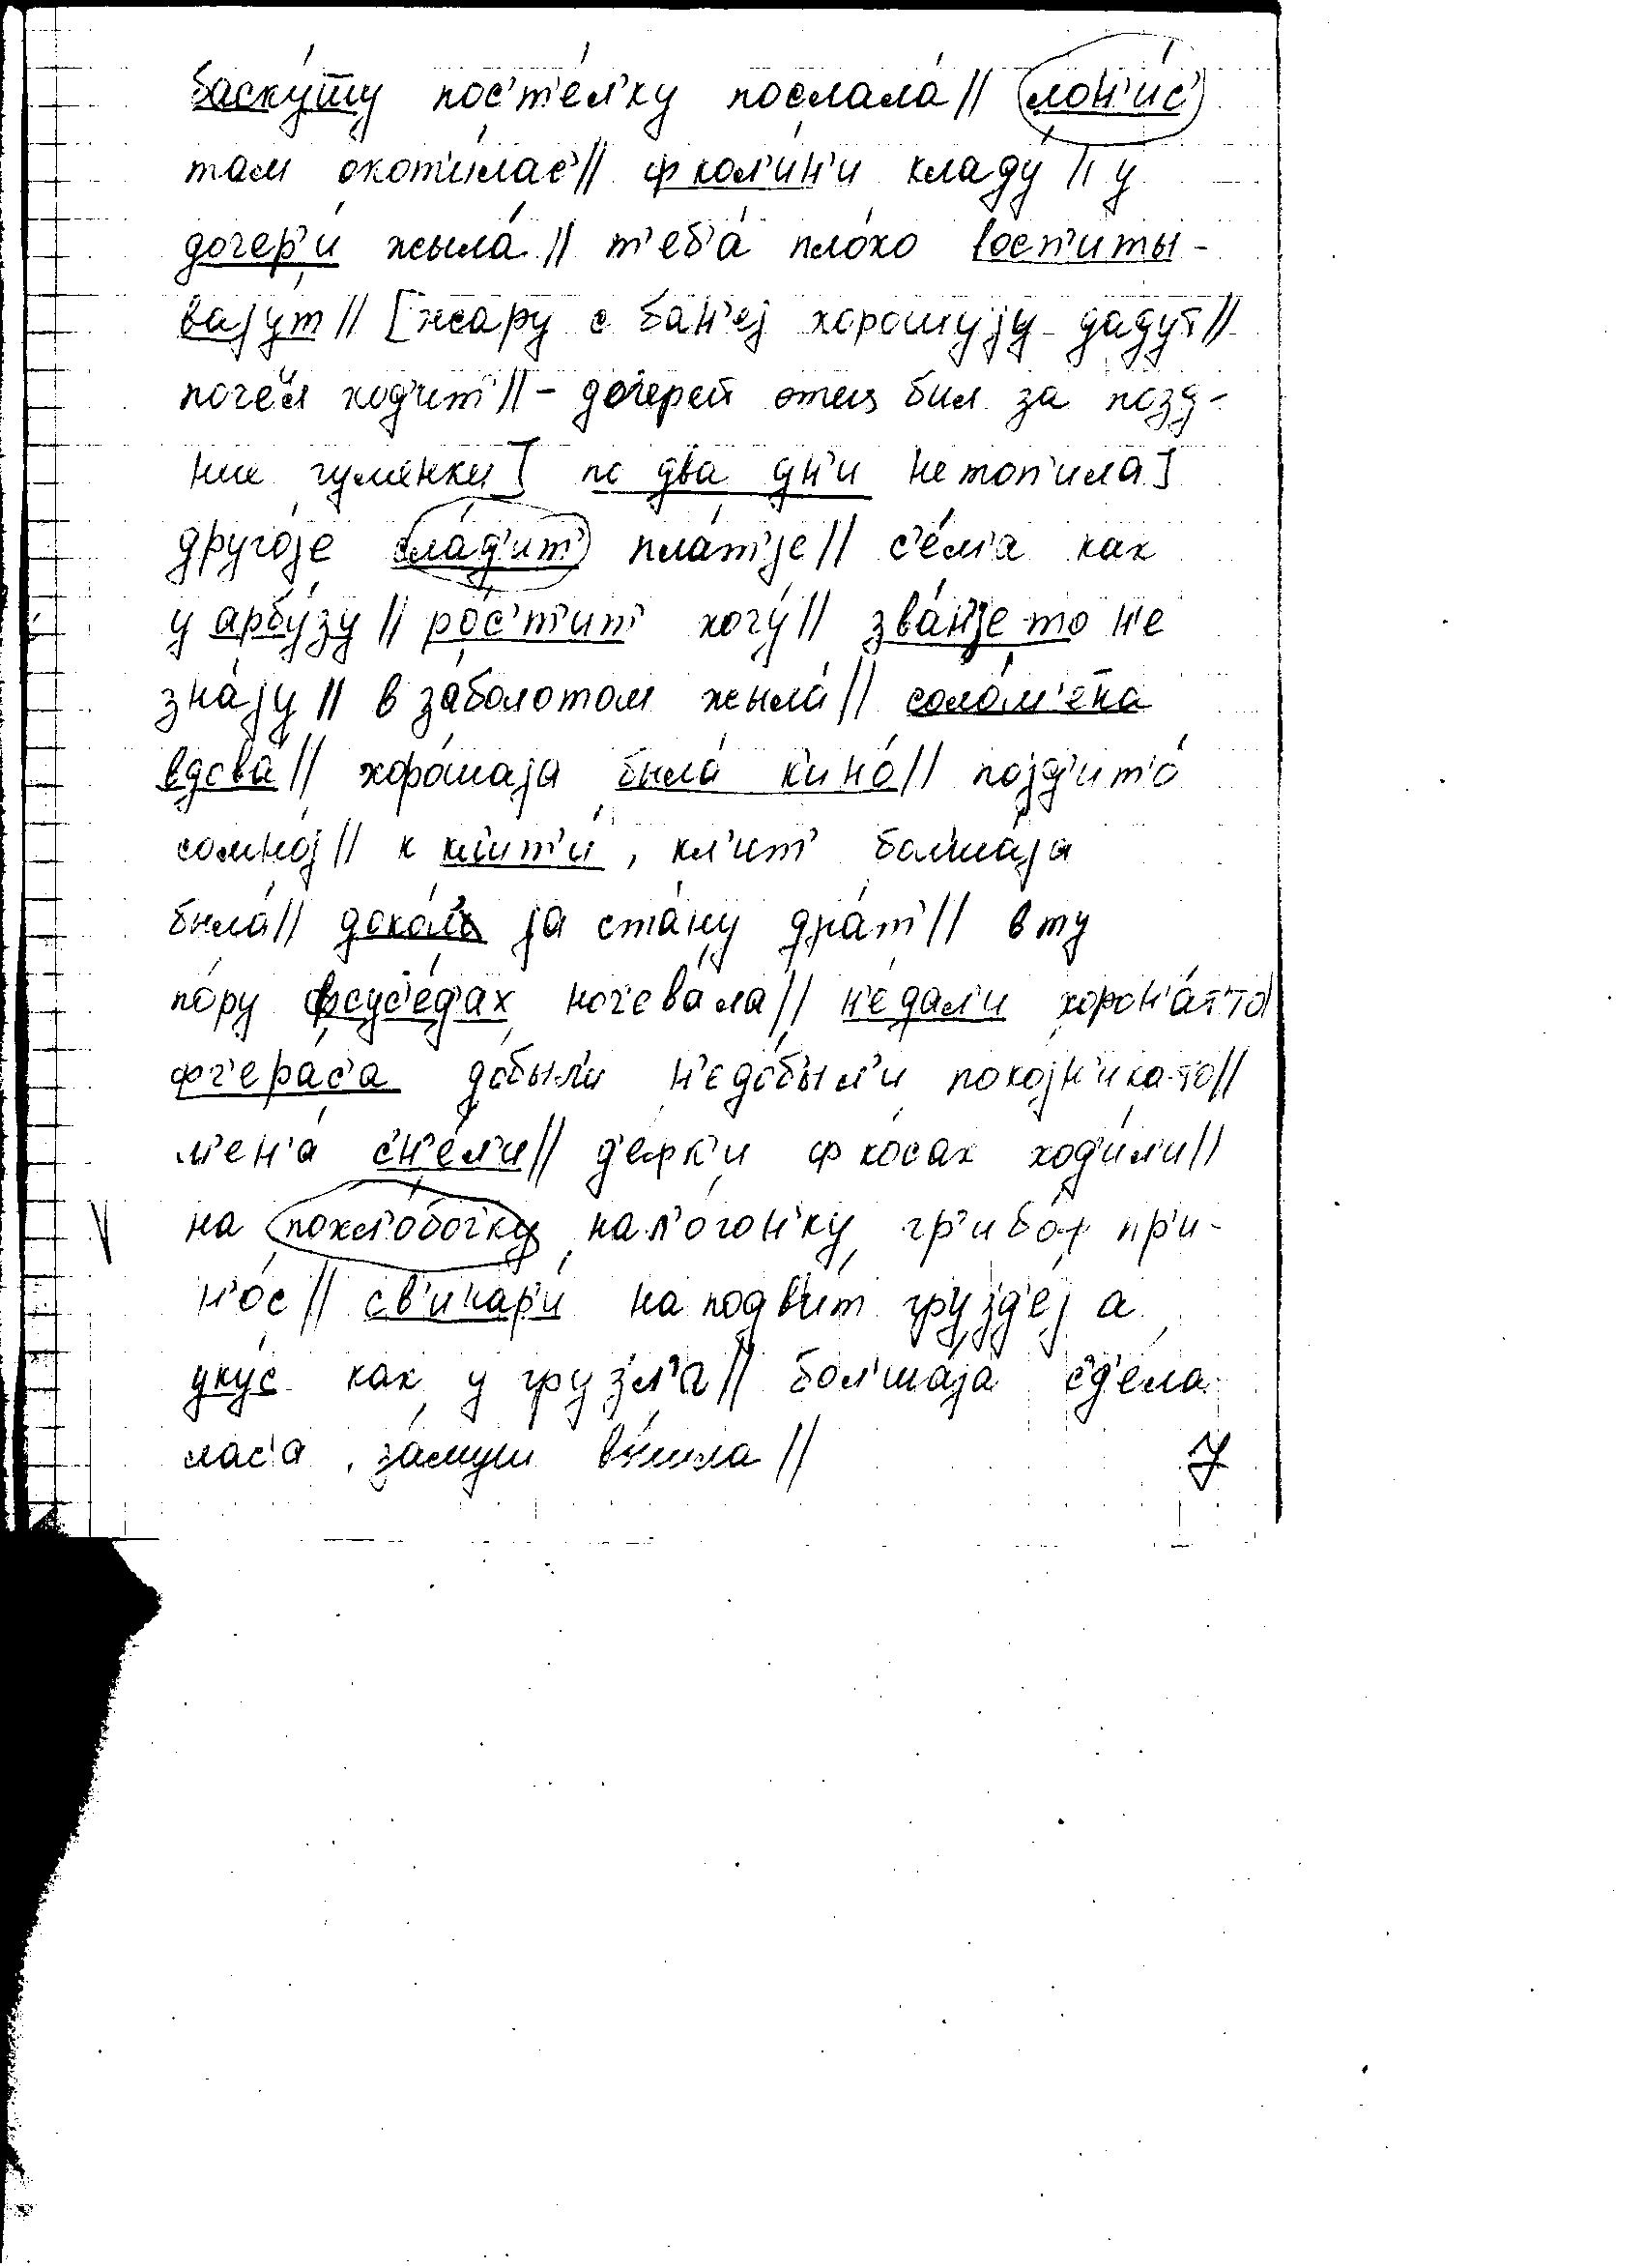 баску́шу пос'т'е́л'ку послала́ // лон'и́с'
там окот'и́лас' // ф кол'и́н'и кладу́ // у
дочер'и́ жыла́ // т'еб'а́ пло́хо восп'иты-
вајут // [жару с бан'еј хорошују дадут //
почём ходит // - дочерей отец бил за позд-
ние гулянки] по два дн'и не топ'ила]
друго́је сла́д'ит' пла́т'је // с'е́м'а как
у арбу́зу // ро́с'т'ит' хочу́ // зва́н'је-то н'е
зна́ју // в за́болотом жыла́ // соло́м'ена
вдова́ // хоро́шаја была́ к'ино́ // појд'ит'о́
сомно́ј // к кл'ит'и́, кл'ит' бол'ша́ја
была́ // доко́ль ја ста́ну дра́т' // в ту
по́ру фсус'е́д'ах ноч'ева́ла // н'е́дал'и хорон'а́т'то
фч'ера́с'а до́был'и н'едо́был'и покојн'ика-то //
м'ен'а́ с'н'е́л'и // д'е́фк'и ф ко́сах ход'и́л'и //
на похл'о́боч'ку на л'о́гон'ку гр'ибо́ф пр'и-
н'о́с // св'инар'и́ на подви́т грузд'е́ј а
уку́с как у грузл'а́ // бол'ша́ја с'д'е́ла
лас'а, за́муш вы́шла //
7